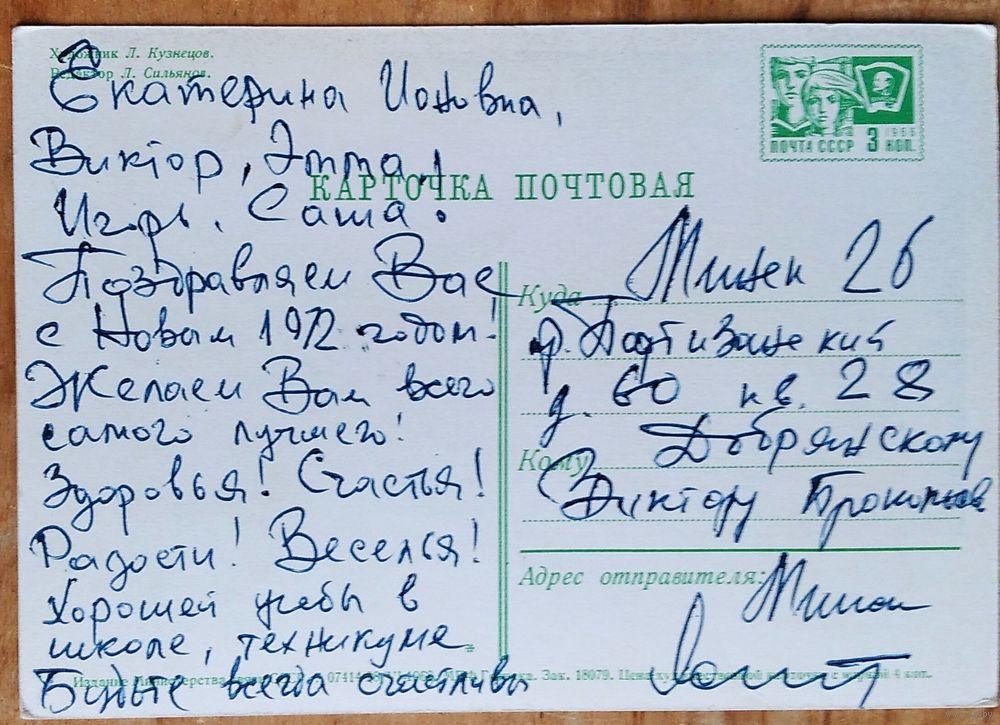 Художник Л. Кузнецов.
Редактор Л. Сильянов.
Екатерина Ионовна,
Виктор, Элла!
Игорь. Саша!
Поздравляем Вас
с Новым 1972 годом!
Желаем Вам всего
самого лучшего!
Здоровья! Счастья!
Радости! Веселья!
Хорошей учебы в
школе, техникуме.
Будьте всегда счастливы
ПОЧТА СССР 3 коп.
1966
КАРТОЧКА ПОЧТОВАЯ
Куда Минск 26
Партизанский
д. 60 кв. 28
Кому Добрянскому
Виктору
Адрес отправителя: Минск
Издание Министерства связи Зак. 18079. Цена художественной карточки с маркой 4 коп.